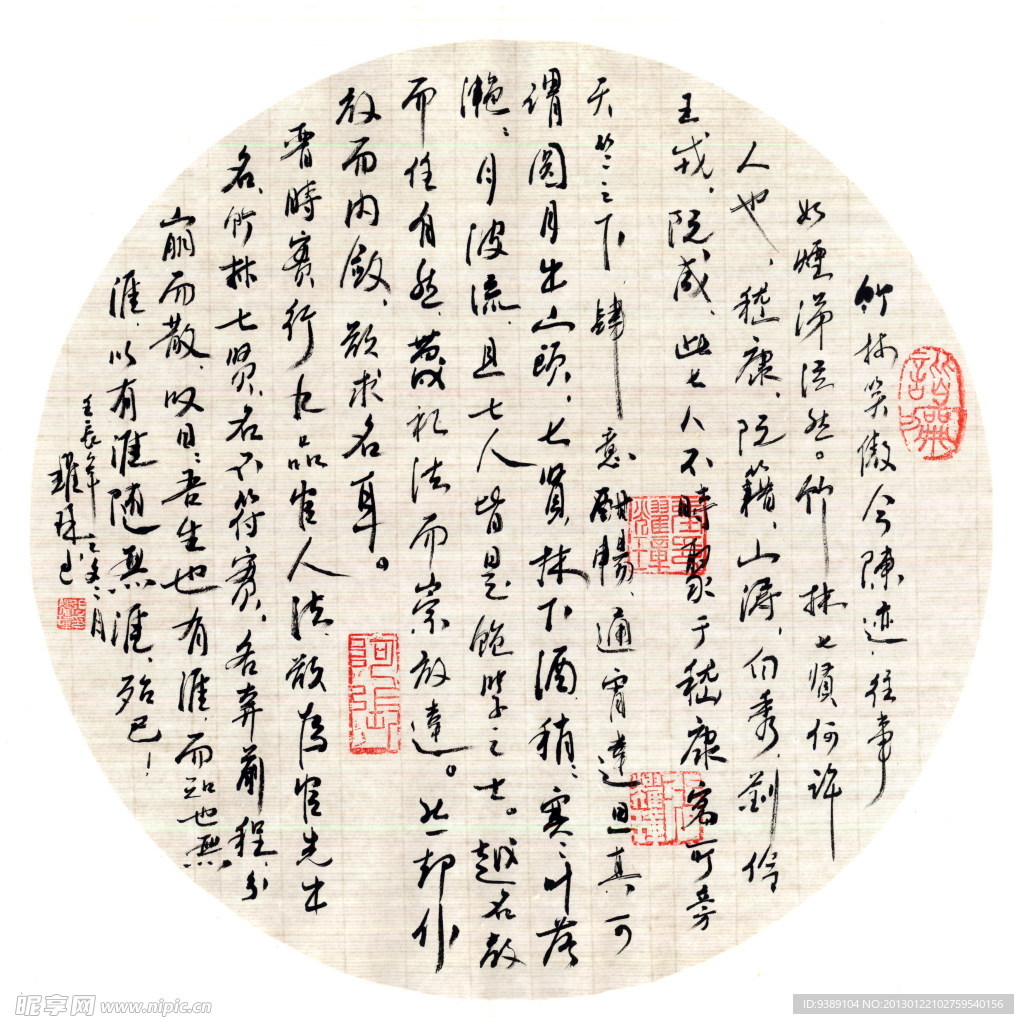 竹林笑傲今陳迹,往事
如煙涕泫然。竹林七賢何許
人也,嵇康,阮籍,山濤,向秀,劉伶
王戎,阮咸,此七人不時聚于嵇康寓所旁
天竺之下,肆意酣暢,通宵達旦真可
謂圓月出山頭,七賢林下酒稍稍寒叶落
滟滟月波流,且七人皆是飽學之士。越名教
而任自然,蔑礼法而崇放達。此一却作
放而内斂,欲求名耳。
晋時實行九品官人法,欲為官先出
名,竹林七賢名不符實,各奔前程,分
崩而散,叹曰:吾生也有涯,而知也無
涯,以有涯隨無涯,殆已!
壬辰年之冬月
耀珪
昵享网 www.nipic.cn
ID:9389104 NO:20130122102759540156